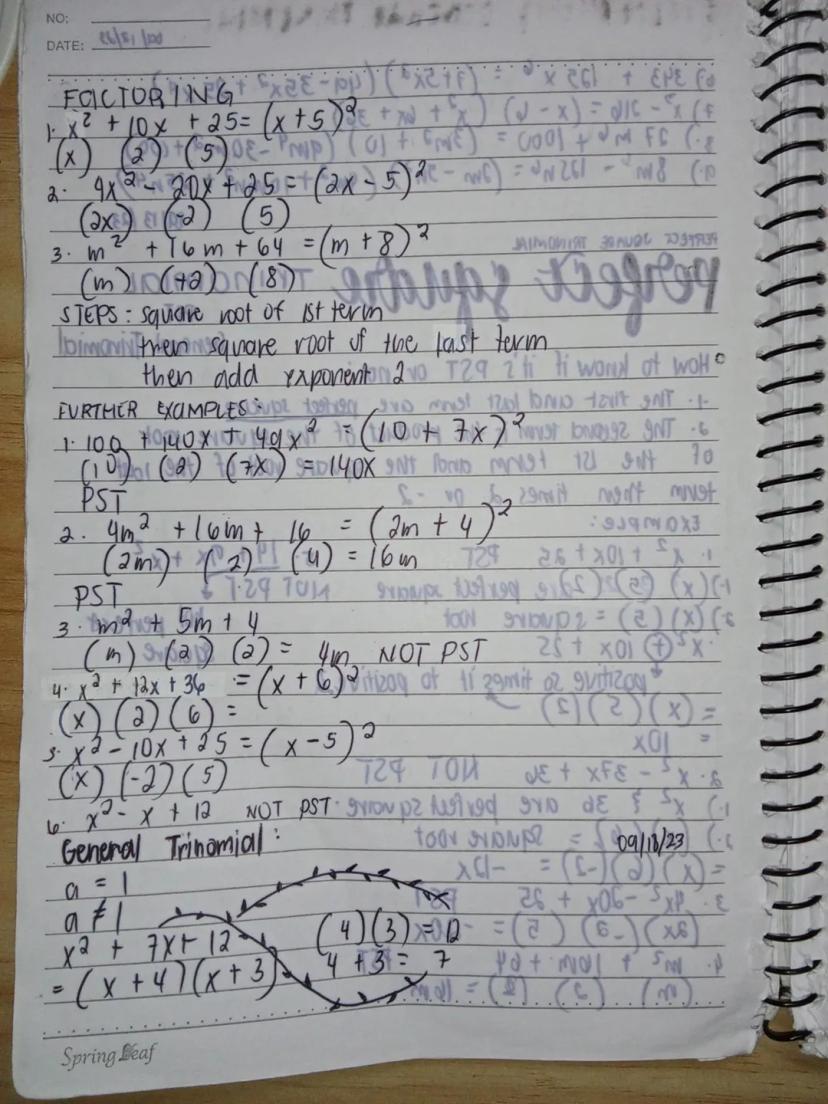 NO:
DATE:
FACTORING
1. x² + 10x + 25 = (x + 5)²
(x) (2) (5)
2. 4x² - 20x + 25 = (2x - 5)²
(2x) (-2) (5)
3. m² + 16m + 64 = (m + 8)²
(m) (+2) (8)
STEPS: square root of 1st term
then square root of the last term
then add exponent 2
FURTHER EXAMPLES:
1. 100 + 140x + 49x² = (10 + 7x)²
(10) (2) (7x) = 140x
PST
2. 4m² + 16m + 16 = (2m + 4)²
(2m) (2) (4) = 16m
PST
3. m² + 5m + 4
(m) (2) (2) = 4m NOT PST
4. x² + 12x + 36 = (x + 6)²
(x) (2) (6) =
5. x² - 10x + 25 = (x - 5)²
(x) (-2) (5)
6. x² - x + 12 NOT PST
General Trinomial: 09/18/23
a = 1
a ≠ 1
x² + 7x + 12 (4)(3) = 12
= (x + 4)(x + 3) 4 + 3 = 7
Spring Leaf